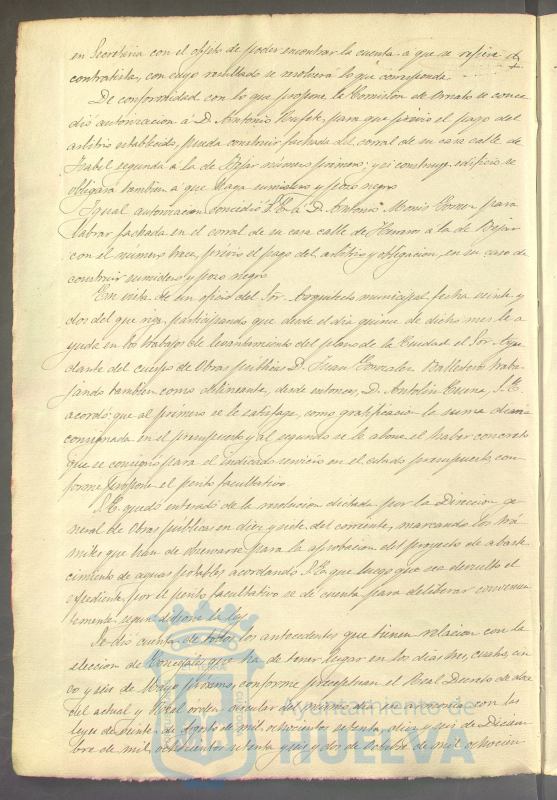 en Secretaría con el objeto de poder encontrar la cuenta a que se refiere el
contratista, con cuyo resultado se resolverá lo que corresponda.
De conformidad con lo que propone la Comision de Ornato se conce
dió autorizacion á D. Antonio para que previo el pago del
arbitrio establecido, pueda construir fachada del corral de su casa calle de
Isabel segunda á la de Bejar número primero; y si construye edificio se
obligará tambien á que haga sumidero y pozo negro
Igual autorizacion concedió S. E. á D. Antonio Gomez para
labrar fachada en el corral de su casa calle de á la de Bejar
con el numero trece, prévio el pago del arbitrio y obligacion en su caso de
construir sumidero y pozo negro
En vista de un oficio del Sor. Arquitecto municipal fecha veinte y
dos del que rige, participando que desde el dia quince de dicho mes le a
yuda en los trabajos de levantamiento del plano de la Ciudad el Sor. Ayu
dante del cuerpo de Obras públicas D. Juan Gonzalez Ballesteros traba
jando tambien como delineante, desde entonces, D. Antolin S. E.
acordó: que al primero se le satisfaga, como gratificacion la suma diaria
consignada en el presupuesto y al segundo se le abone el haber concreto
que se consignó para el indicado servicio en el citado presupuesto, con
forme propone el perito facultativo.
S. E. quedó enterado de la resolucion dictada por la Direccion ge
neral de Obras públicas en diez y siete del corriente, marcando los trá
mites que han de observarse para la aprobacion del proyecto de abaste
cimiento de aguas potables acordando S. E. que luego que sea devuelto el
expediente por el perito facultativo se dé cuenta para deliberar convenien
temente segun dispone la ley.
Se dió cuenta de todos los antecedentes que tienen relacion con la
eleccion de Concejales que ha de tener lugar en los dias tres, cuatro, cin
co y seis de Mayo próximo, conforme preceptuan el Real Decreto de doce
del actual y Real orden circular del mismo dia en armonía con las
leyes de veinte de Agosto de mil ochocientos setenta, diez y seis de Diciem
bre de mil ochocientos setenta y seis y dos de Octubre de mil ochocien
Ayuntamiento de
HUELVA